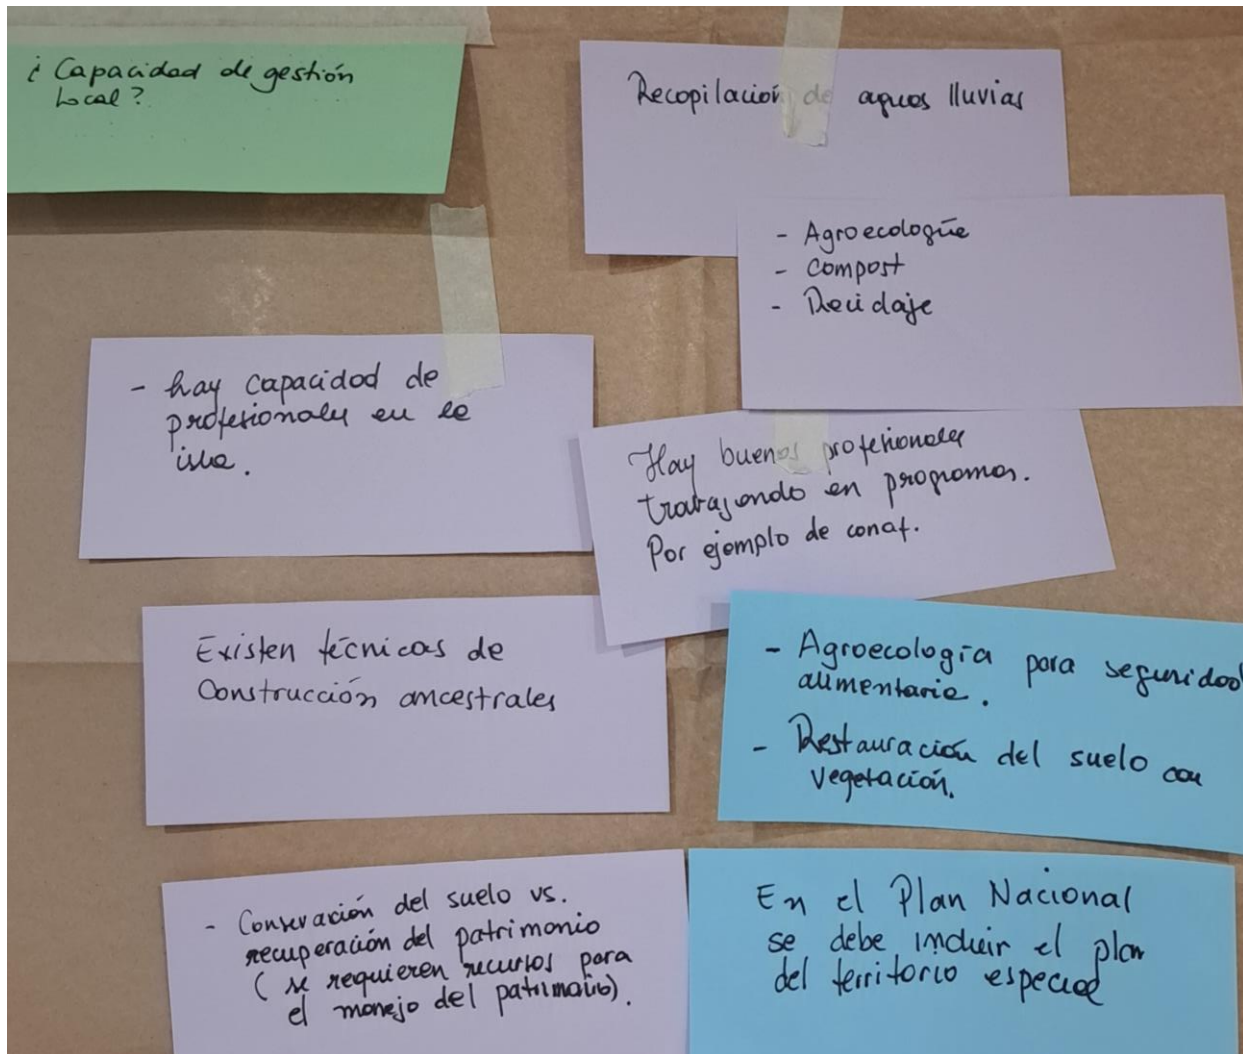 ¿Capacidad de gestión
Local?
Recopilación de aguas lluvias
- Agroecología
- Compost
- Reciclaje
- hay capacidad de
profesionales en la
isla.
Hay buenos profesionales
trabajando en programas.
Por ejemplo de conaf.
Existen técnicas de
Construcción ancestrales
- Agroecología para seguridad
alimentaria.
- Restauración del suelo con
vegetación.
- Conservación del suelo vs.
recuperación del patrimonio
(se requieren recursos para
el manejo del patrimonio).
En el Plan Nacional
se debe incluir el plan
del territorio especial